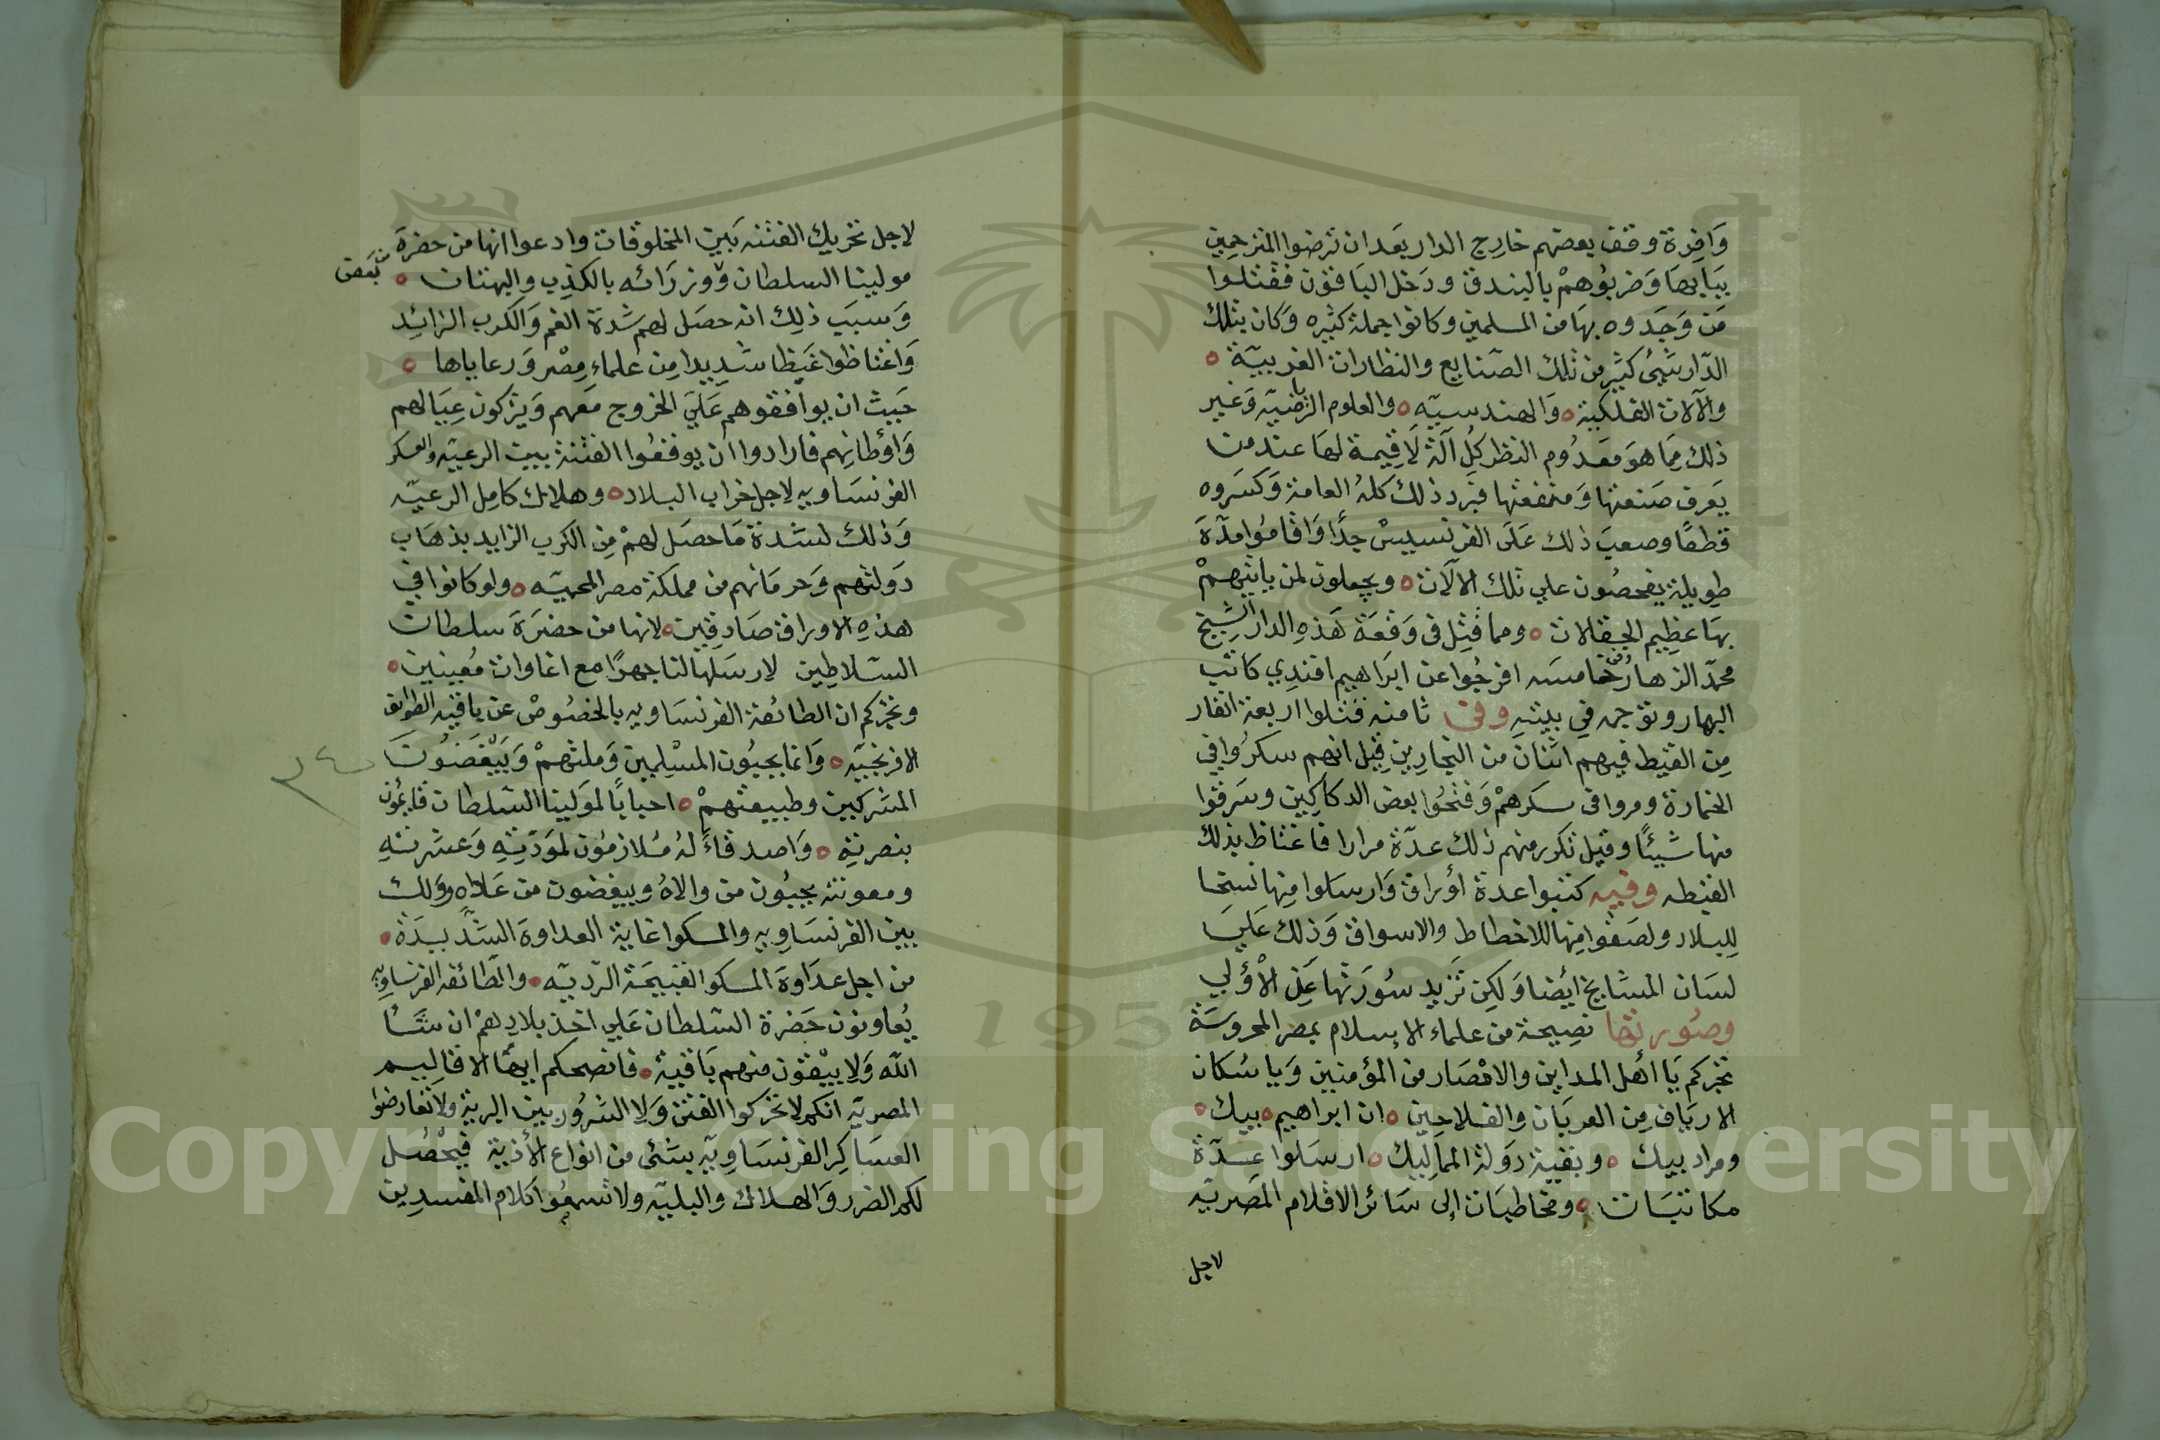 وَافِرة وقف بعضهم خارج الدار بعد ان ترضوا المتزحمين
ببابها وَضربُوهمْ بالبندق ودَخل الباقون فقتلوا
مَن وَجَدوه بهَا من المسلمين وكانوا جملة كثيره وَكان بتلك
الدّار شيئ كثير من تلك الصّنايع والنظارات الغريبيّة ه
والآلات الفلكية ه وَالهندسيّه ه والعلوم الرياضيّه وَغير
ذلك مِمَا هوَ معدُوم النظر كُل آلة لا قيمة لهَا عند من
يَعرف صَنعتها وَمنفعتها فبرد ذلكَ كلهُ العامة وَكسَروه
قطعًا وصعبَ ذلك عَلَى الفرنسيسْ جدًا وَاقامُوا مدّةَ
طِويلة يفحصُون علي تلك الالآت ه ويجعلون لمن يأتيهمْ
بهَا عظِيم الجقالات ه ومما قُتِل فى وَقعَة هَذهِ الدار الشيخ
محمّد الزهارُ وفى خامسَه افرجُوا عن ابَراهيم افندِي كاتب
البهار وتوجه فِي بيتهِ وفى ثامنه قتلوا اربعة انفار
مِن القبَط فيهم اثنان من النجارين قِيل انهم سكرُوا في
الخمارة ومروا فى سكرهمْ وَفتحُوا بعض الدكاكِين وسَرقوا
منها شيئًا وقيل تكرر منهم ذلك عدّة مرارا فاغتاظ بذلك
القبطه وفيه كتبوا عدة أوْراق وَارسَلوا مِنها نسخا
للبلاد ولصَقوا مِنها للاخطاط والاسواق وَذلك عَليَ
لسَان المشَايخ ايْضا وَلكِن تَزيد سُورَتها عَن الْأوُلي
وصُورتها نصِيحة من علماء الاسلام بمصر المحروسَة
نخبركم يَا أهل المداين والامْصَار من المؤمنين وَيا سُكان
الارياف مِن العربَان والفلاحين ه ان ابراهيم ه بيك ه
ومراد بيك ه وبقية دَولة المماليك ه ارسَلوا عِدّة
مكاتبَات ه ومخاطبَات إلى سَائر الاقلام المَصريّه
لاجل
لاجل تحريك الفتنه بَين المخلوقات وادعوا انها من حضرةَ
مولينا السلطان وَوزرَائه بالكذِب والبهتان ه
بعض
وَسبَب ذلِك انه حصَل لهم شدّة الغم وَالكرب الزائِد
وَاغتاظوا غَيظا شديدا مِن عُلماءِ مِصْر وَرعاياها ه
حَيث ان يوافقوهم عَليَ الخروج مَعَهم وَيتركون عِيَالهم
وَاوْطانهم فارادوا ان يوقعُوا الفتنة بين الرعيّه والعسكر
الفرنسَاويه لاجل خراب البلاد ه وهلاك كامِل الرعيّه
وَذلك لشدة مَا حصَل لهمْ مِن الكرب الزايد بذهَاب
دَولتهم وَحرمَانهم من مملكة مصر المحميّه ه ولو كانوا في
هذهِ الاوراق صَادقِين ه لانها من حضرَة سلطان
السّلاطِين لارسَلها لنا جهرًا مع اغاوات مُعينين ه
ونخبركم ان الطائفة الفرنسَاويه بالخصُوصْ عن باقيه الطوايف
الافرنجيّه ه وَانما يحبُون المسْلِمين وَملتهمْ وَيَبْغضُون
٢٤
المشركين وطبيعتهمْ ه احبابًا لمَولينا السّلطان قايمُون
بنصرتهِ ه وَاصدقاءً لهُ مُلازمُون لموَدّتهِ وَعشرتهِ
ومعونته يحبُون من والاهُ ويبغضون من عَاداه وَلذلك
بين الفرنسَاوِيه والمسكوا غاية العداوة الشّدّيدَة ه
من اجل عدَاوة المسكوا القبيحَة الرّديّه ه والطّائفه الفرنساويه
يُعاونون حَضرة السّلطان عَلي اخذ بلادِهمْ ان شَاْ
اللّه وَلا يبْقون منهم بَاقية ه فانصحكم ايهّا الاقاليم
المصريّه انكم لا تحرّكوا الفتن وَلا الشرُور بين البرية ولا تعارضوا
العسَاكِر الفرنسَاوِيّه بشئى من انواع الأذية فيحْصُل
لكم الضرر وَالهلاك والبليّه ولا تسمعُوا كلام المفسدِين